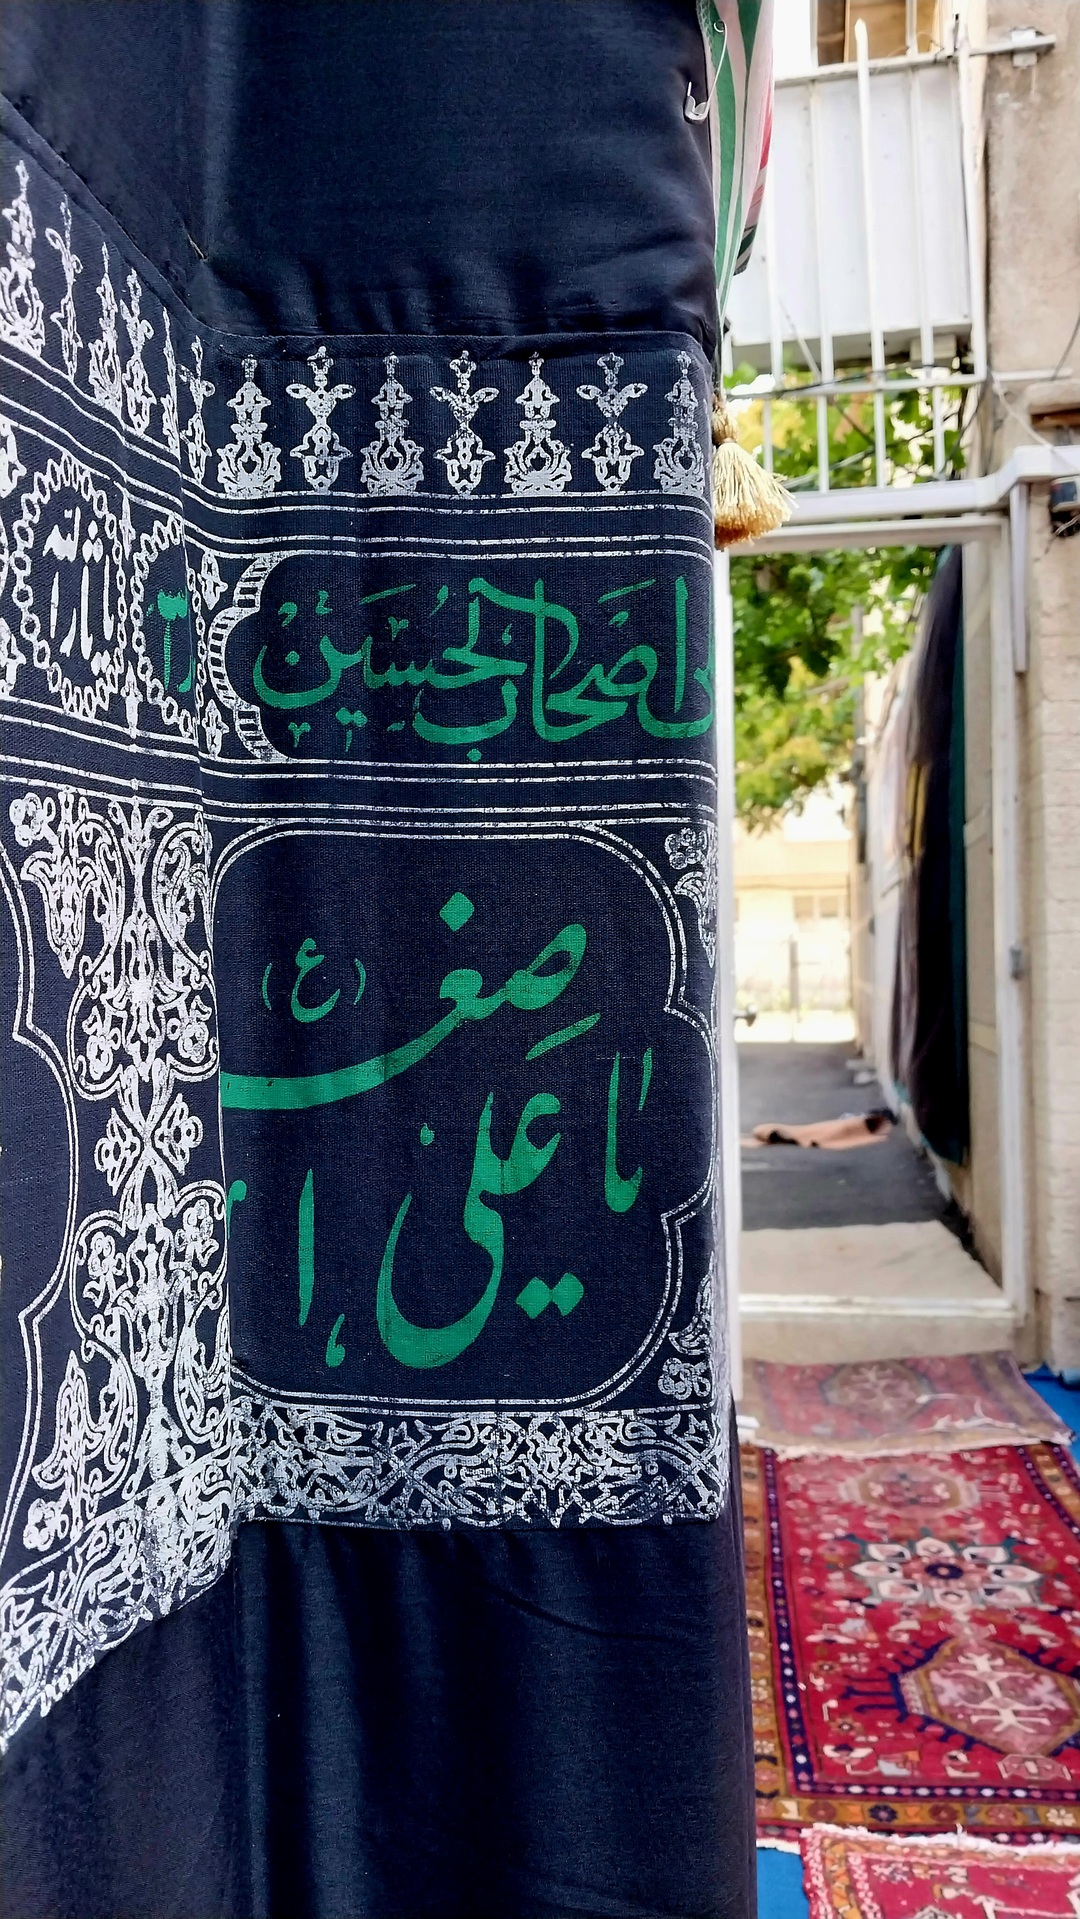 اصحاب الحسین
یا ثارالله
صغـ (ع)
یا علی ا